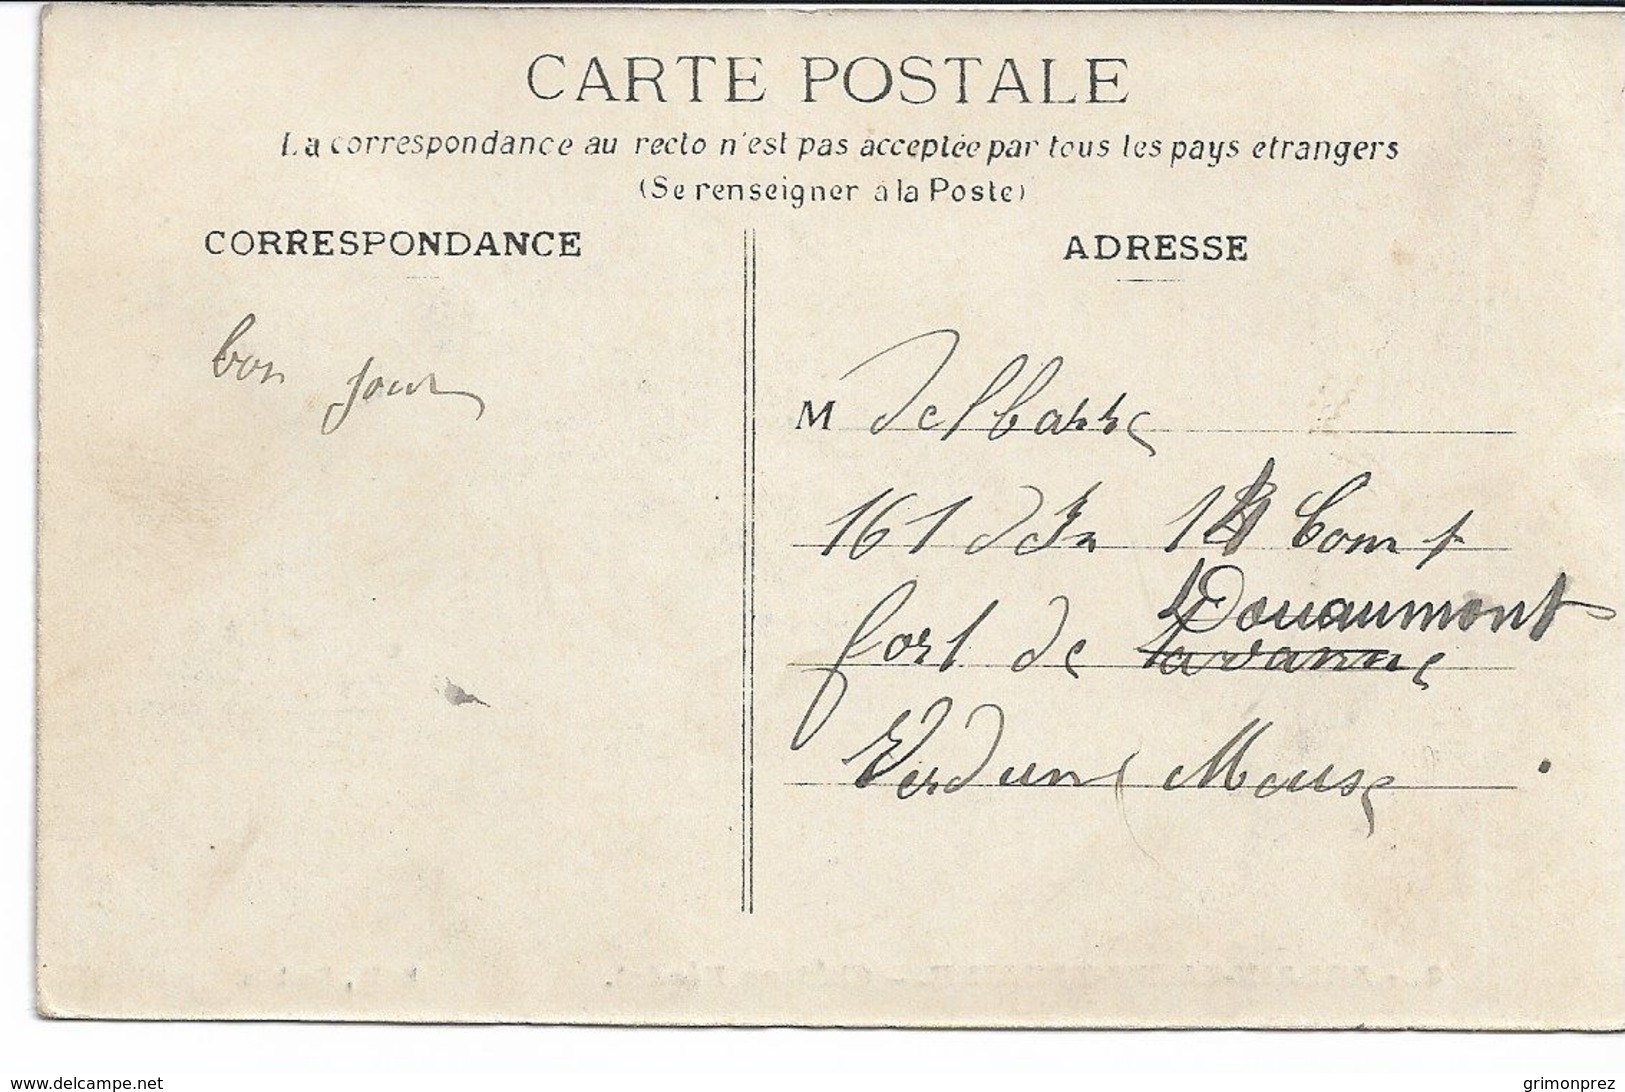 CARTE POSTALE
La correspondance au recto n'est pas acceptée par tous les pays etrangers
(Se renseigner à la Poste)
CORRESPONDANCE
ADRESSE
bon jour
M Delbarre
161 d'In 14 Comp
Douaumont
fort de tavanne
Verdun Meuse
www.delcampe.net
grimonprez